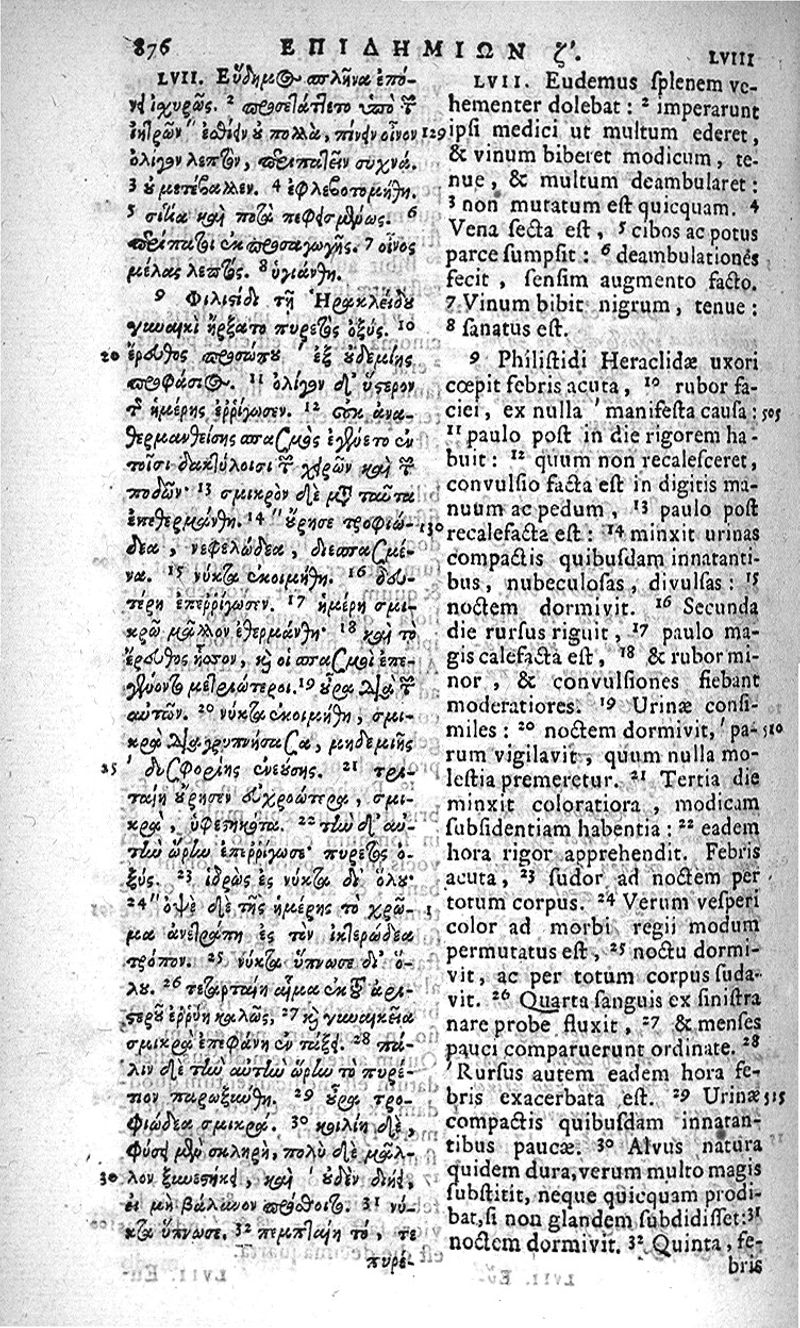 876
ΕΠΙΔΗΜΙΩΝ ζ'.
LVIII
LVII. Εὔδημος σπλῆνα ἐπό-
νει ἰχυρῶς. 2 προσετάττετο ὑπὸ τῶν
ἰητρῶν ἐσθίειν οὐ πολλὰ, πίνειν οἶνον
ὀλίγον λεπτὸν, περιπατεῖν συχνά.
3 οὐ μετέβαλλεν. 4 ἐφλεβοτομήθη.
5 σιτία καὶ ποτὰ πεφεισμένως. 6
περίπατοι ἐκ προσαγωγῆς. 7 οἶνος
μέλας λεπτός. 8 ὑγιάνθη.
9 Φιλιστίδι τῇ Ἡρακλείδου
γυναικὶ ἤρξατο πυρετὸς ὀξύς. 10
20 ἔρευθος προσώπου ἐξ οὐδεμίης
προφάσιος. 11 ὀλίγον δ' ὕστερον
τῆς ἡμέρης ἐῤῥίγωσεν. 12 οὐκ ἀνα-
θερμανθείσης σπασμὸς ἐγένετο ἐν
τοῖσι δακτύλοισι τῶν χειρῶν καὶ τῶν
ποδῶν· 13 σμικρὸν δὲ μετὰ ταῦτα
ἐπεθερμάνθη. 14 οὔρησε τροφιώ-
δεα, νεφελώδεα, διεσπασμέ-
να. 15 νύκτα ἐκοιμήθη. 16 δευ-
τέρη ἐπεῤῥίγωσεν. 17 ἡμέρη σμι-
κρῷ μᾶλλον ἐθερμάνθη· 18 καὶ τὸ
ἔρευθος ἧσσον, κὶ οἱ σπασμοὶ ἐπε-
γένοντο μετριώτεροι. 19 οὖρα διὰ τῶν
αὐτῶν. 20 νύκτα ἐκοιμήθη, σμι-
κρὰ διαγρυπνήσασα, μηδεμιῆς
25 δυσφορίης ἐνεούσης. 21 τρι-
ταίη οὔρησεν εὐχροώτερα, σμι-
κρὰ, ὑφεστηκότα. 22 τὴν δ' αὐ-
τὴν ὥρην ἐπεῤῥίγωσε· πυρετὸς ὀ-
ξύς. 23 ἱδρὼς ἐς νύκτα δι' ὅλου·
24 ὀψὲ δὲ τῆς ἡμέρης τὸ χρῶ-
μα ἀνετράπη ἐς τὸν ἰκτερώδεα
τρόπον. 25 νύκτα ὕπνωσε δι' ὅ-
λου. 26 τεταρταίη αἷμα ἐκ τοῦ ἀρι-
στεροῦ ἐῤῥύη καλῶς, 27 κὶ γυναικεῖα
σμικρὰ ἐπεφάνη ἐν τάξει. 28 πά-
λιν δὲ τὴν αὐτὴν ὥρην τὸ πυρέ-
τιον παρωξύνθη. 29 οὖρα τρο-
φιώδεα σμικρά. 30 κοιλίη δὲ,
φύσει μὲν σκληρὴ, πολὺ δὲ μᾶλ-
30 λον ξυνεστήκει, καὶ οὐδὲν διῄει,
εἰ μὴ βάλανον προσθοῖτο. 31 νύ-
κτα ὕπνωσε. 32 πεμπταίη τό, τε
πυρέ-
LVII. Eudemus splenem ve-
hementer dolebat : 2 imperarunt
129 ipsi medici ut multum ederet,
& vinum biberet modicum, te-
nue, & multum deambularet :
3 non mutatum est quicquam. 4
Vena secta est, 5 cibos ac potus
parce sumpsit : 6 deambulationes
fecit, sensim augmento facto.
7 Vinum bibit nigrum, tenue :
8 sanatus est.
9 Philistidi Heraclidæ uxori
cœpit febris acuta, 10 rubor fa-
ciei, ex nulla manifesta causa : 505
11 paulo post in die rigorem ha-
buit : 12 quum non recalesceret,
convulsio facta est in digitis ma-
nuum ac pedum, 13 paulo post
130 recalefacta est : 14 minxit urinas
compactis quibusdam innatanti-
bus, nubeculosas, divulsas : 15
noctem dormivit. 16 Secunda
die rursus riguit, 17 paulo ma-
gis calefacta est, 18 & rubor mi-
nor, & convulsiones fiebant
moderatiores. 19 Urinæ consi-
miles : 20 noctem dormivit, pa- 510
rum vigilavit, quum nulla mo-
lestia premeretur. 21 Tertia die
minxit coloratiora, modicam
subsidentiam habentia : 22 eadem
hora rigor apprehendit. Febris
acuta, 23 sudor ad noctem per
totum corpus. 24 Verum vesperi
1 color ad morbi regii modum
permutatus est, 25 noctu dormi-
vit, ac per totum corpus suda-
vit. 26 Quarta sanguis ex sinistra
nare probe fluxit, 27 & menses
pauci comparuerunt ordinate. 28
Rursus autem eadem hora fe-
bris exacerbata est. 29 Urinæ 515
compactis quibusdam innatan-
tibus paucæ. 30 Alvus natura
quidem dura, verum multo magis
substitit, neque quicquam prodi-
bat, si non glandem subdidisset: 31
noctem dormivit. 32 Quinta, fe-
bris